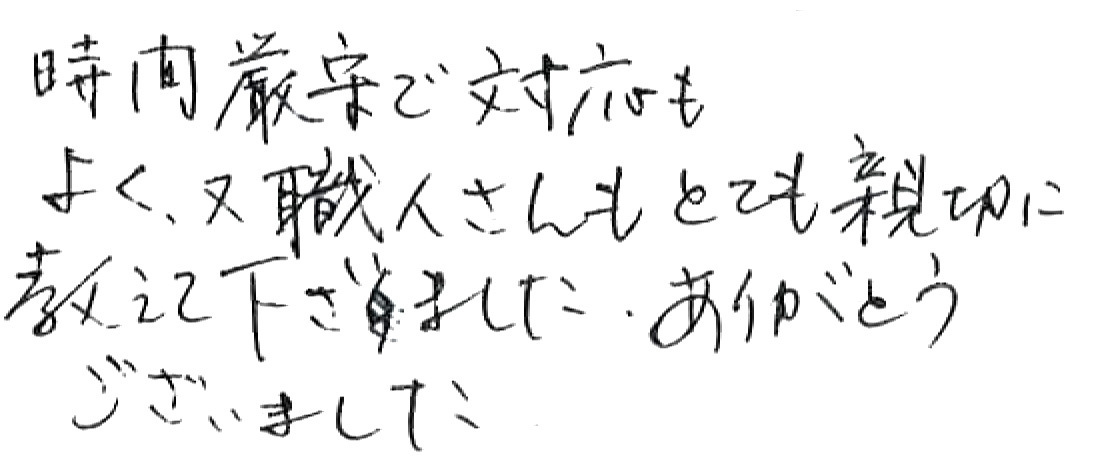 時間厳守で対応も
よく、又職人さんもとても親切に
教えて下さいました。ありがとう
ございました